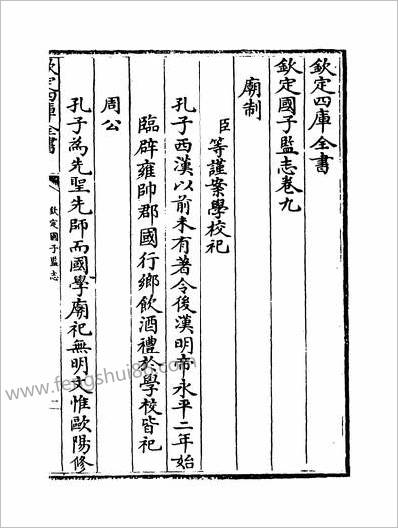 欽定四庫全書
欽定國子監志卷九
廟制
臣等謹案學校祀
孔子西漢以前未有著令後漢明帝永平二年始
臨辟雍帥郡國行鄉飲酒禮於學校皆祀
周公
孔子為先聖先師而國學廟祀無明文惟歐陽修
欽定四庫全書
欽定國子監志
www.fengshui86.com